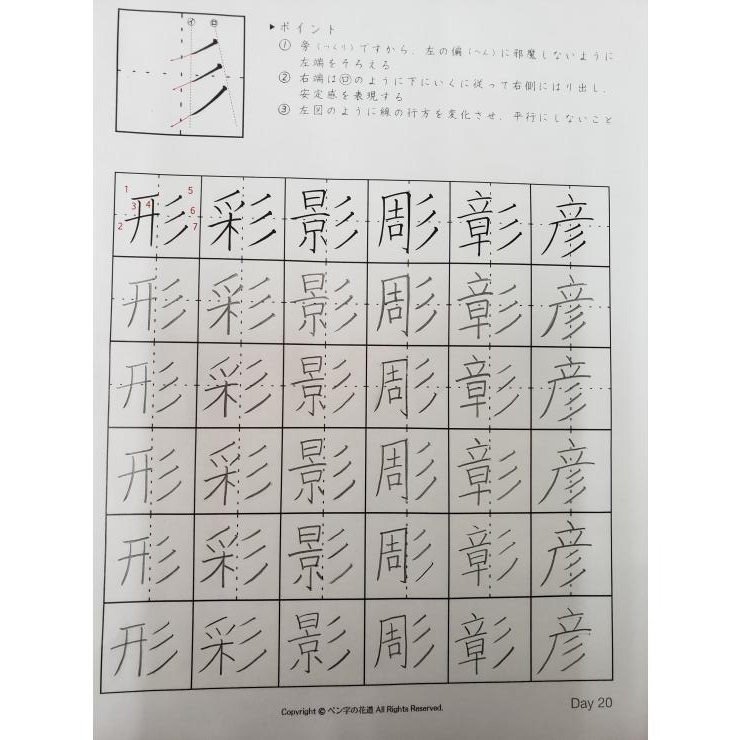 イ ロ
▶ポイント
① 旁(つくり)ですから、左の偏(へん)に邪魔しないように
左端をそろえる
② 右端はロのように下にいくに従って右側にはり出し、
安定感を表現する
③ 左図のように線の行方を変化させ、平行にしないこと
1 2 3 4 5 6 7
形 彩 影 彫 彰 彦
形 彩 影 彫 彰 彦
形 彩 影 彫 彰 彦
形 彩 影 彫 彰 彦
形 彩 影 彫 彰 彦
形 彩 影 彫 彰 彦
Day 20
Copyright © ペン字の花道 All Rights Reserved.